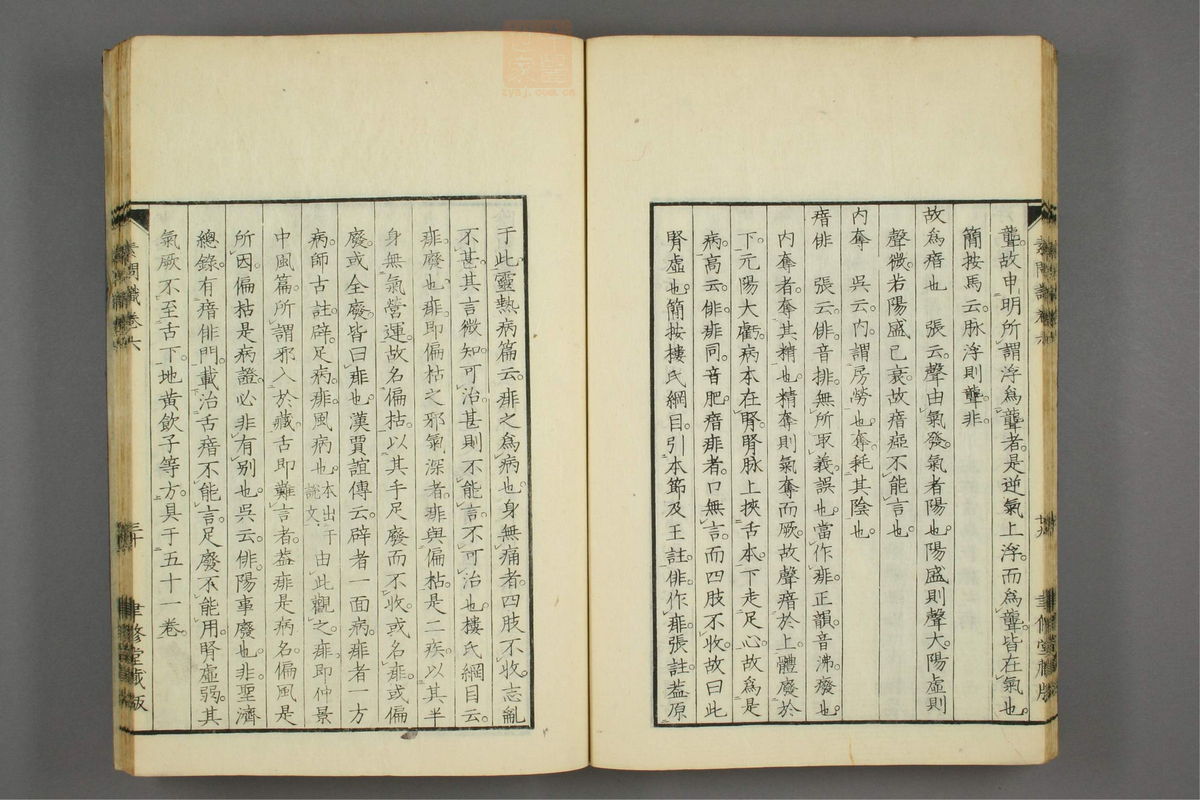 聾。故申明所謂浮爲聾者。是逆氣上浮。而爲聾。皆在氣也。
簡按馬云。脉浮則聾。非。
故爲瘖也　張云。聲由氣發。氣者陽也。陽盛則聲大。陽虛則
聲微。若陽盛已衰。故瘖瘂不能言也。
內奪　吳云。內。謂房勞也。奪。耗其陰也。
瘖俳　張云。俳。音排。無所取義。誤也。當作痱。正韻。音沸。廢也。
內奪者。奪其精也。精奪則氣奪而厥。故聲瘖於上。體廢於
下。元陽大虧。病本在腎。腎脉上挾舌本。下走足心。故爲是
病。高云。俳。痱同。音肥。瘖痱者。口無言。而四肢不收。故曰此
腎虛也。簡按樓氏綱目。引本節及王註。俳。作痱。張註。葢原
于此。靈熱病篇云。痱之爲病也。身無痛者。四肢不收。志亂
不甚。其言微知。可治。甚則不能言。不可治也。樓氏綱目云。
痱。廢也。痱。即偏枯之邪氣深者。痱與偏枯。是二疾。以其半
身無氣營運。故名偏枯。以其手足廢而不收。或名痱。或偏
廢。或全廢。皆曰痱也。漢賈誼傳云。辟者一面病。痱者一方
病。師古註。辟。足病。痱。風病也。本出于說文。由此觀之。痱。即仲景
中風篇。所謂邪入於藏。舌即難言者。葢痱是病名。偏風是
所因。偏枯是病證。必非有別也。吳云。俳。陽事廢也。非。聖濟
總錄。有瘖俳門。載治舌瘖不能言。足廢不能用。腎虛弱。其
氣厥不至舌下。地黃飲子等方。具于五十一卷。
素問識卷六
三十
聿修堂藏版